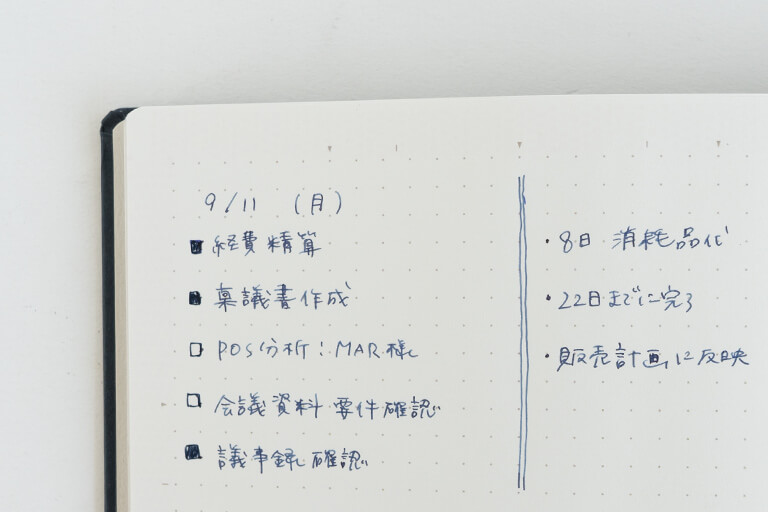 9/11 (月)
■ 経費精算
■ 稟議書作成
□ POS分析:MAR様
□ 会議資料 要件確認
■ 議事録 確認
・8日 消耗品代
・22日までに完了
・販売計画に反映